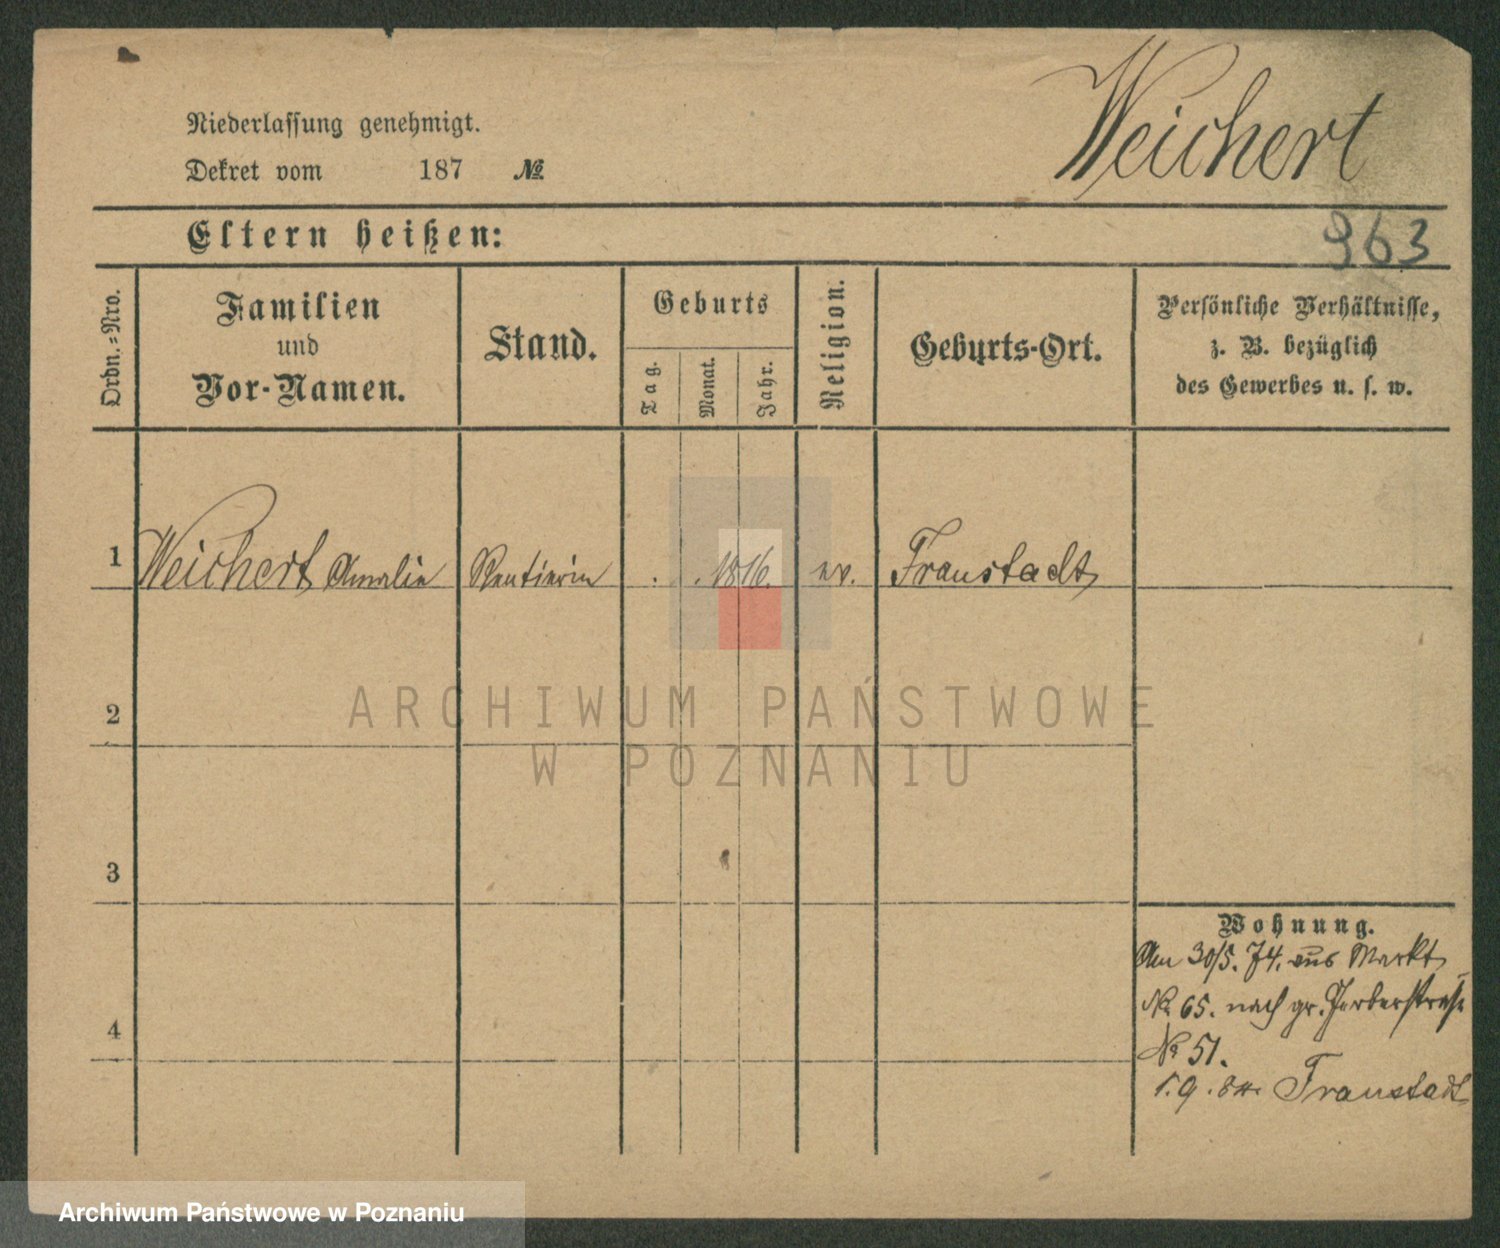 Weichert
Niederlassung genehmigt.
Dekret vom 187 №
Eltern heißen:
963
Ordn.=Nro.
Familien
und
Vor-Namen.
Stand.
Geburts
Tag.
Monat.
Jahr.
Religion.
Geburts-Ort.
Persönliche Verhältnisse,
z. B. bezüglich
des Gewerbes u. s. w.
1 Weichert Amalie Rentierin . . 1816. ev. Fraustadt
ARCHIWUM PAŃSTWOWE
W POZNANIU
2
3
4
Wohnung.
Am 30/5. 74. aus Markt
№ 65. nach gr. Gerberstraße
№ 51.
1.9.84. Fraustadt
Archiwum Państwowe w Poznaniu